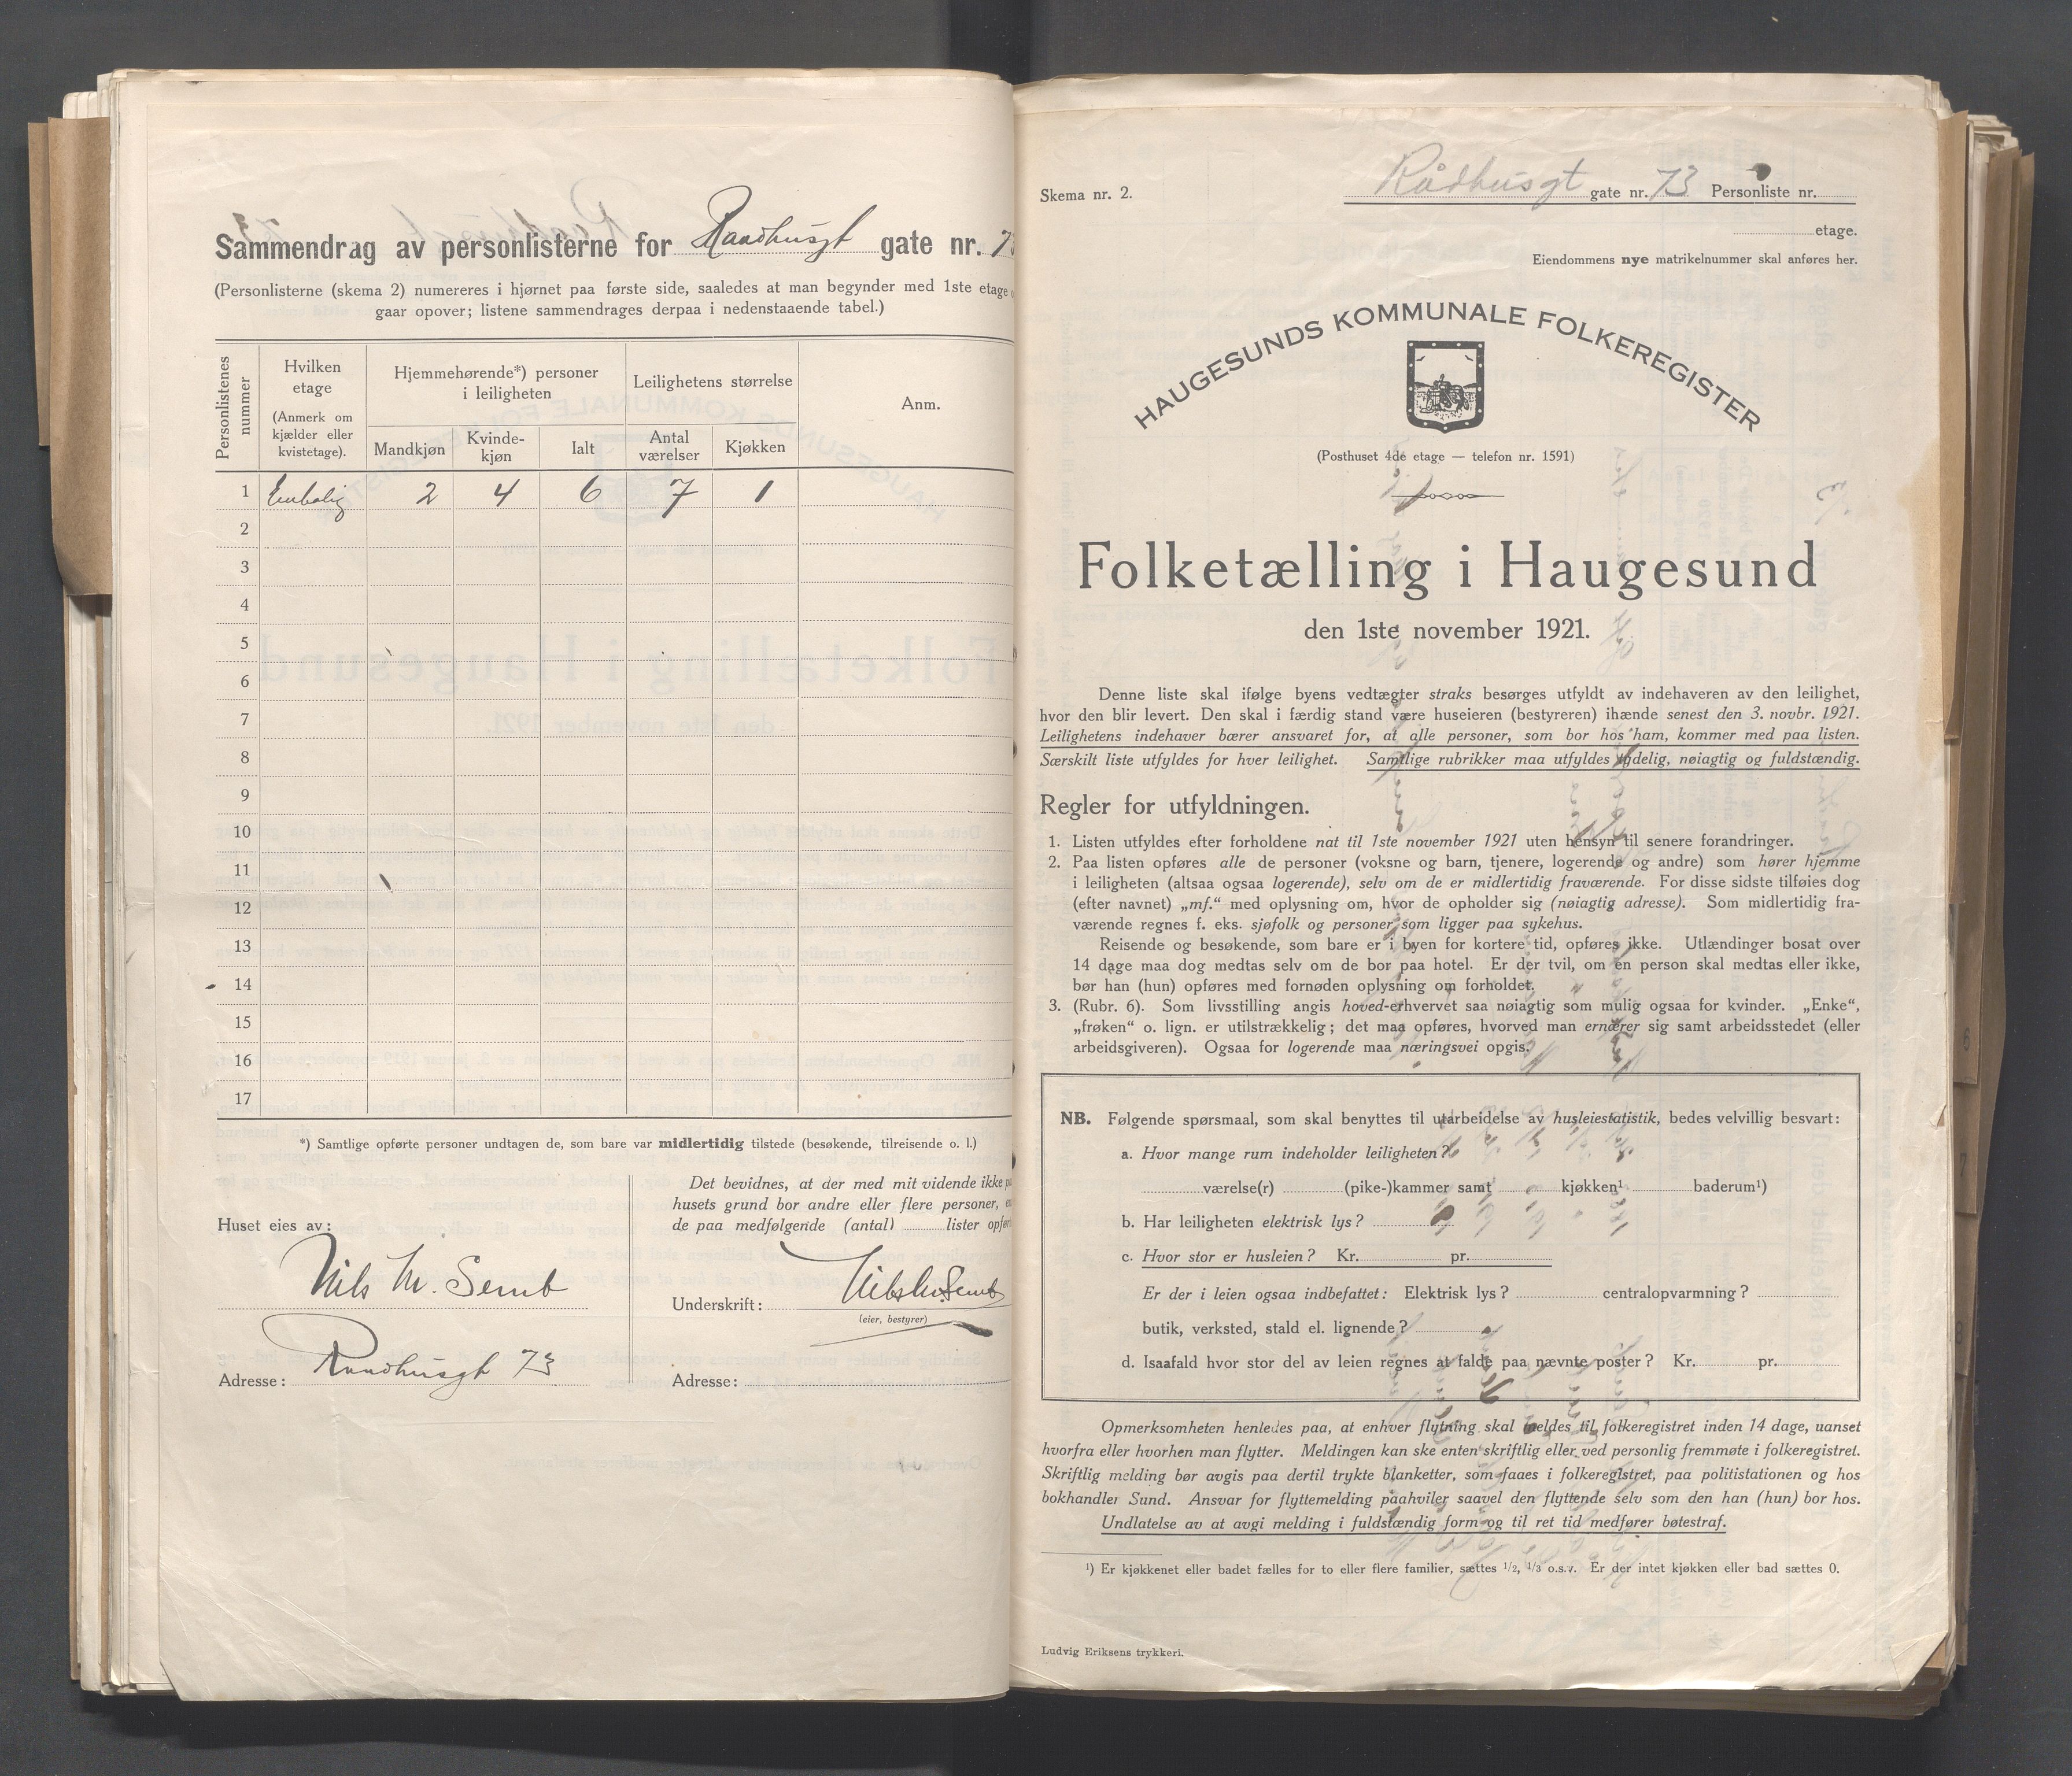 Sammendrag av personlisterne for Raadhusgt gate nr. 73
(Personlisterne (skema 2) numereres i hjørnet paa første side, saaledes at man begynder med 1ste etage
gaar opover; listene sammendrages derpaa i nedenstaaende tabel.)
Personlistenes nummer
Hvilken etage
(Anmerk om kjælder eller kvistetage).
Hjemmehørende*) personer i leiligheten
Mandkjøn
Kvinde-
kjøn
Ialt
Leilighetens størrelse
Antal værelser
Kjøkken
Anm.
1 Enebolig 2 4 6 7 1
2
3
4
5
6
7
8
9
10
11
12
13
14
15
16
17
*) Samtlige opførte personer undtagen de, som bare var midlertidig tilstede (besøkende, tilreisende o. l.)
Huset eies av:
Nils M. Semb
Adresse: Raadhusgt 73
Det bevidnes, at der med mit vidende ikke
husets grund bor andre eller flere personer,
de paa medfølgende (antal) lister
Underskrift: Nils M. Semb
(eier, bestyrer)
Adresse:
Skema nr. 2.
Rådhusgt gate nr. 73 Personliste nr.
etage.
Eiendommens nye matrikelnummer skal anføres her.
HAUGESUNDS KOMMUNALE FOLKEREGISTER
(Posthuset 4de etage — telefon nr. 1591)
Folketælling i Haugesund
den 1ste november 1921.
Denne liste skal ifølge byens vedtægter straks besørges utfyldt av indehaveren av den leilighet,
hvor den blir levert. Den skal i færdig stand være huseieren (bestyreren) ihænde senest den 3. novbr. 1921.
Leilighetens indehaver bærer ansvaret for, at alle personer, som bor hos ham, kommer med paa listen.
Særskilt liste utfyldes for hver leilighet. Samtlige rubrikker maa utfyldes tydelig, nøiagtig og fuldstændig.
Regler for utfyldningen.
1. Listen utfyldes efter forholdene nat til 1ste november 1921 uten hensyn til senere forandringer.
2. Paa listen opføres alle de personer (voksne og barn, tjenere, logerende og andre) som hører hjemme
i leiligheten (altsaa ogsaa logerende), selv om de er midlertidig fraværende. For disse sidste tilføies dog
(efter navnet) „mf.“ med oplysning om, hvor de opholder sig (nøiagtig adresse). Som midlertidig fra-
værende regnes f. eks. sjøfolk og personer som ligger paa sykehus.
Reisende og besøkende, som bare er i byen for kortere tid, opføres ikke. Utlændinger bosat over
14 dage maa dog medtas selv om de bor paa hotel. Er der tvil, om en person skal medtas eller ikke,
bør han (hun) opføres med fornøden oplysning om forholdet.
3. (Rubr. 6). Som livsstilling angis hoved-erhvervet saa nøiagtig som mulig ogsaa for kvinder. „Enke“,
„frøken“ o. lign. er utilstrækkelig; det maa opføres, hvorved man ernærer sig samt arbeidsstedet (eller
arbeidsgiveren). Ogsaa for logerende maa næringsvei opgis.
NB. Følgende spørsmaal, som skal benyttes til utarbeidelse av husleiestatistik, bedes velvillig besvart:
a. Hvor mange rum indeholder leiligheten?
værelse(r) (pike-)kammer samt kjøkken¹ baderum¹)
b. Har leiligheten elektrisk lys?
c. Hvor stor er husleien? Kr. pr.
Er der i leien ogsaa indbefattet: Elektrisk lys? centralopvarmning?
butik, verksted, stald el. lignende?
d. Isaafald hvor stor del av leien regnes at falde paa nævnte poster? Kr. pr.
Opmerksomheten henledes paa, at enhver flytning skal meldes til folkeregistret inden 14 dage, uanset
hvorfra eller hvorhen man flytter. Meldingen kan ske enten skriftlig eller ved personlig fremmøte i folkeregistret.
Skriftlig melding bør avgis paa dertil trykte blanketter, som faaes i folkeregistret, paa politistationen og hos
bokhandler Sund. Ansvar for flyttemelding paahviler saavel den flyttende selv som den han (hun) bor hos.
Undlatelse av at avgi melding i fuldstændig form og til ret tid medfører bøtestraf.
¹) Er kjøkkenet eller badet fælles for to eller flere familier, sættes 1/2, 1/3 o.s.v. Er der intet kjøkken eller bad sættes 0.
Ludvig Eriksens trykkeri.